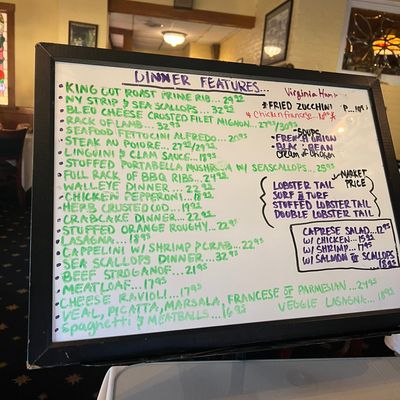 DINNER FEATURES...
• KING CUT ROAST PRIME RIB...29.95
• NY STRIP & SEA SCALLOPS...32.95
• BLEU CHEESE CRUSTED FILET MIGNON...27.95/30.95
• RACK OF LAMB...32.95
• SEAFOOD FETTUCINI ALFREDO...20.95
• STEAK AU POIVRE...27.95/29.95
• LINGUINI & CLAM SAUCE...18.95
• STUFFED PORTABELLA MUSHROOM W/ SEASCALLOPS...25.95
• FULL RACK OF BBQ RIBS...24.95
• WALLEYE DINNER...22.95
• CHICKEN PEPPERONI...18.95
• HERB CRUSTED COD...19.95
• CRABCAKE DINNER...22.95
• STUFFED ORANGE ROUGHY...22.95
• LASAGNA...18.95
• CAPPELINI W/ SHRIMP & CRAB...22.95
• SEA SCALLOPS DINNER...32.95
• BEEF STROGANOF...21.95
• MEATLOAF...17.95
• CHEESE RAVIOLI...17.95
• VEAL, PICATTA, MARSALA, FRANCESE OR PARMESIAN...24.95
• Spaghetti & MEATBALLS...16.95
VEGGIE LASAGNA...18.95
Virginia
* FRIED ZUCCHINI
* Chicken Francese
SOUPS
• FRENCH ONION
• BLACK BEAN
Cream of Chicken
MARKET PRICE
LOBSTER TAIL
SURF & TURF
STUFFED LOBSTER TAIL
DOUBLE LOBSTER TAIL
CAPRESE SALAD...12.95
W/ CHICKEN...15.95
W/ SHRIMP...17.95
W/ SALMON OR SCALLOPS
18.95